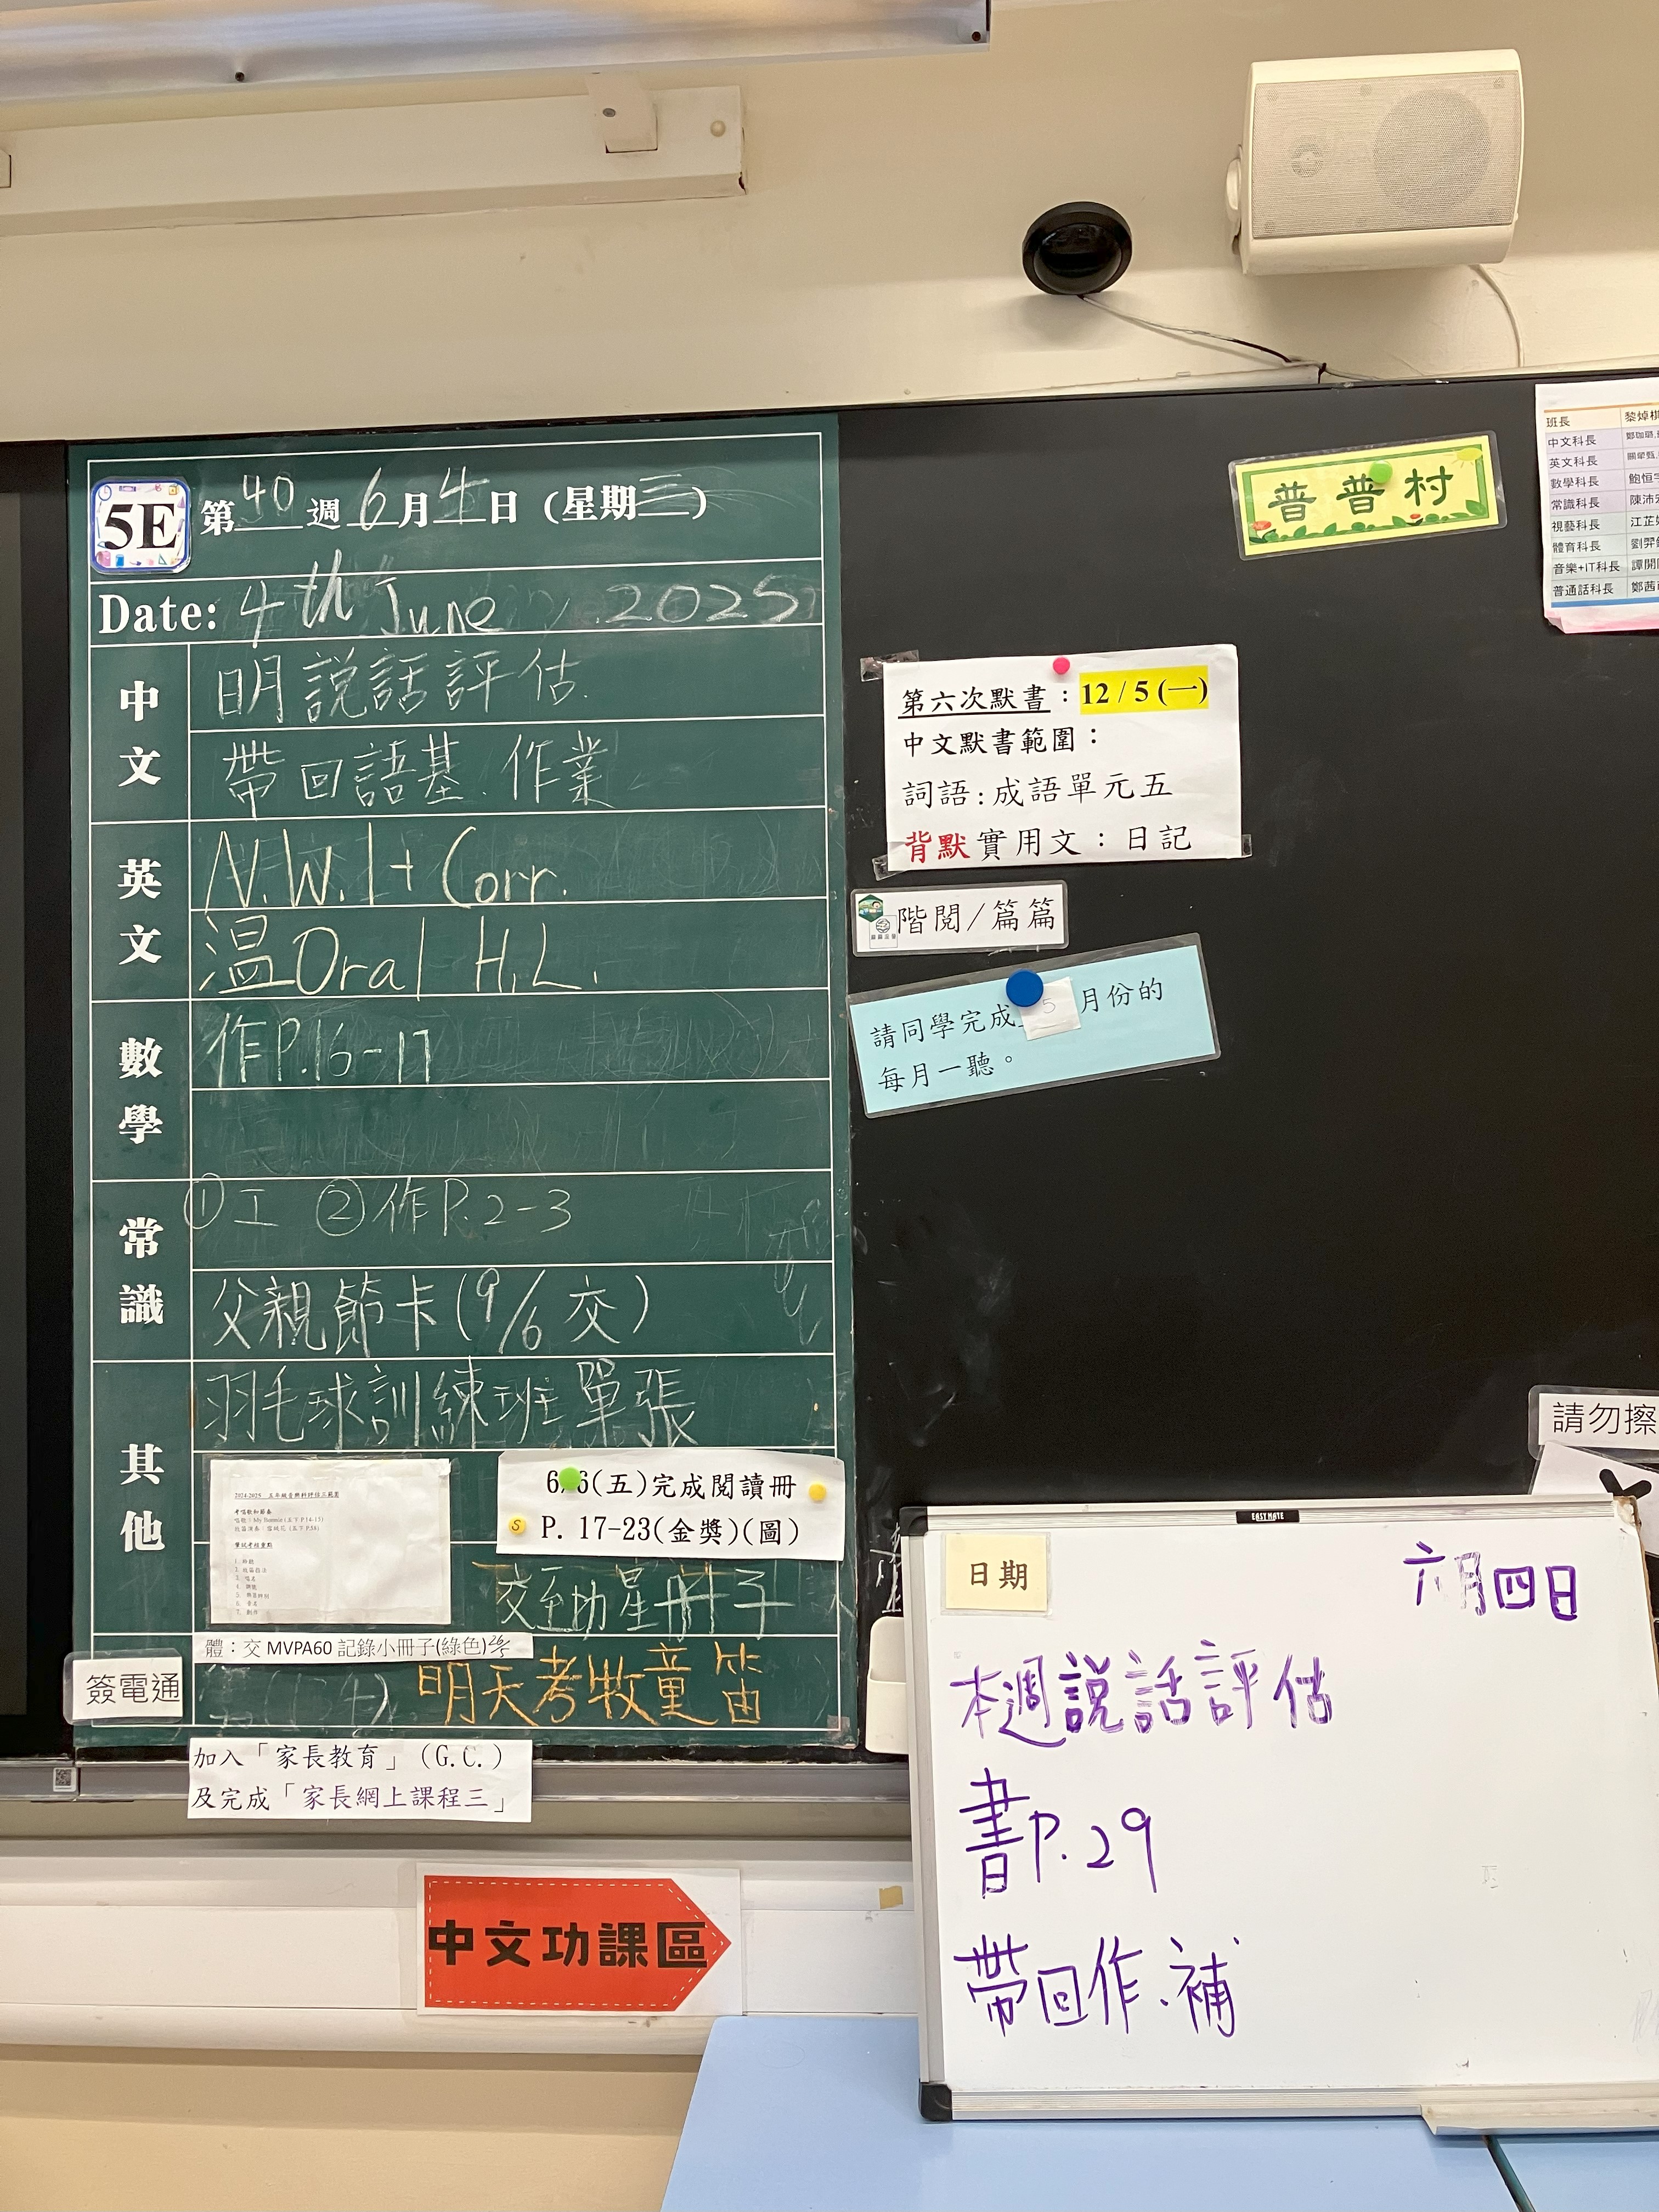 5E 第40週6月4日(星期三)
Date: 4th June 2025
中文
明說話評估
帶回語基、作業
英文
N.W.1+ Corr.
温Oral H.L.
數學
作P.16-17
常識
①工 ②作P.2-3
父親節卡(9/6交)
其他
羽毛球訓練班單張
2024-2025 五年級音樂科評估三範圍
6/6(五)完成閱讀冊
S P. 17-23(金獎)(圖)
交至叻星冊子
體:交 MVPA60 記錄小冊子(綠色)
簽電通
明天考牧童笛
加入「家長教育」(G.C.)
及完成「家長網上課程三」
中文功課區
普普村
班長
中文科長
英文科長
數學科長
常識科長
視藝科長
體育科長
音樂+IT科長
普通話科長
第六次默書:12/5(一)
中文默書範圍:
詞語:成語單元五
背默實用文:日記
階閱/篇篇
請同學完成5月份的
每月一聽。
請勿擦
EASYMATE
日期
六月四日
本週說話評估
書P.29
帶回作、補